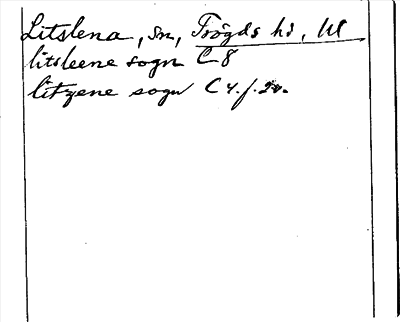 Litslena, sn, Trögds hd, Ul
litsleene sogn C 8
litzene sogn C 4. f. 20.